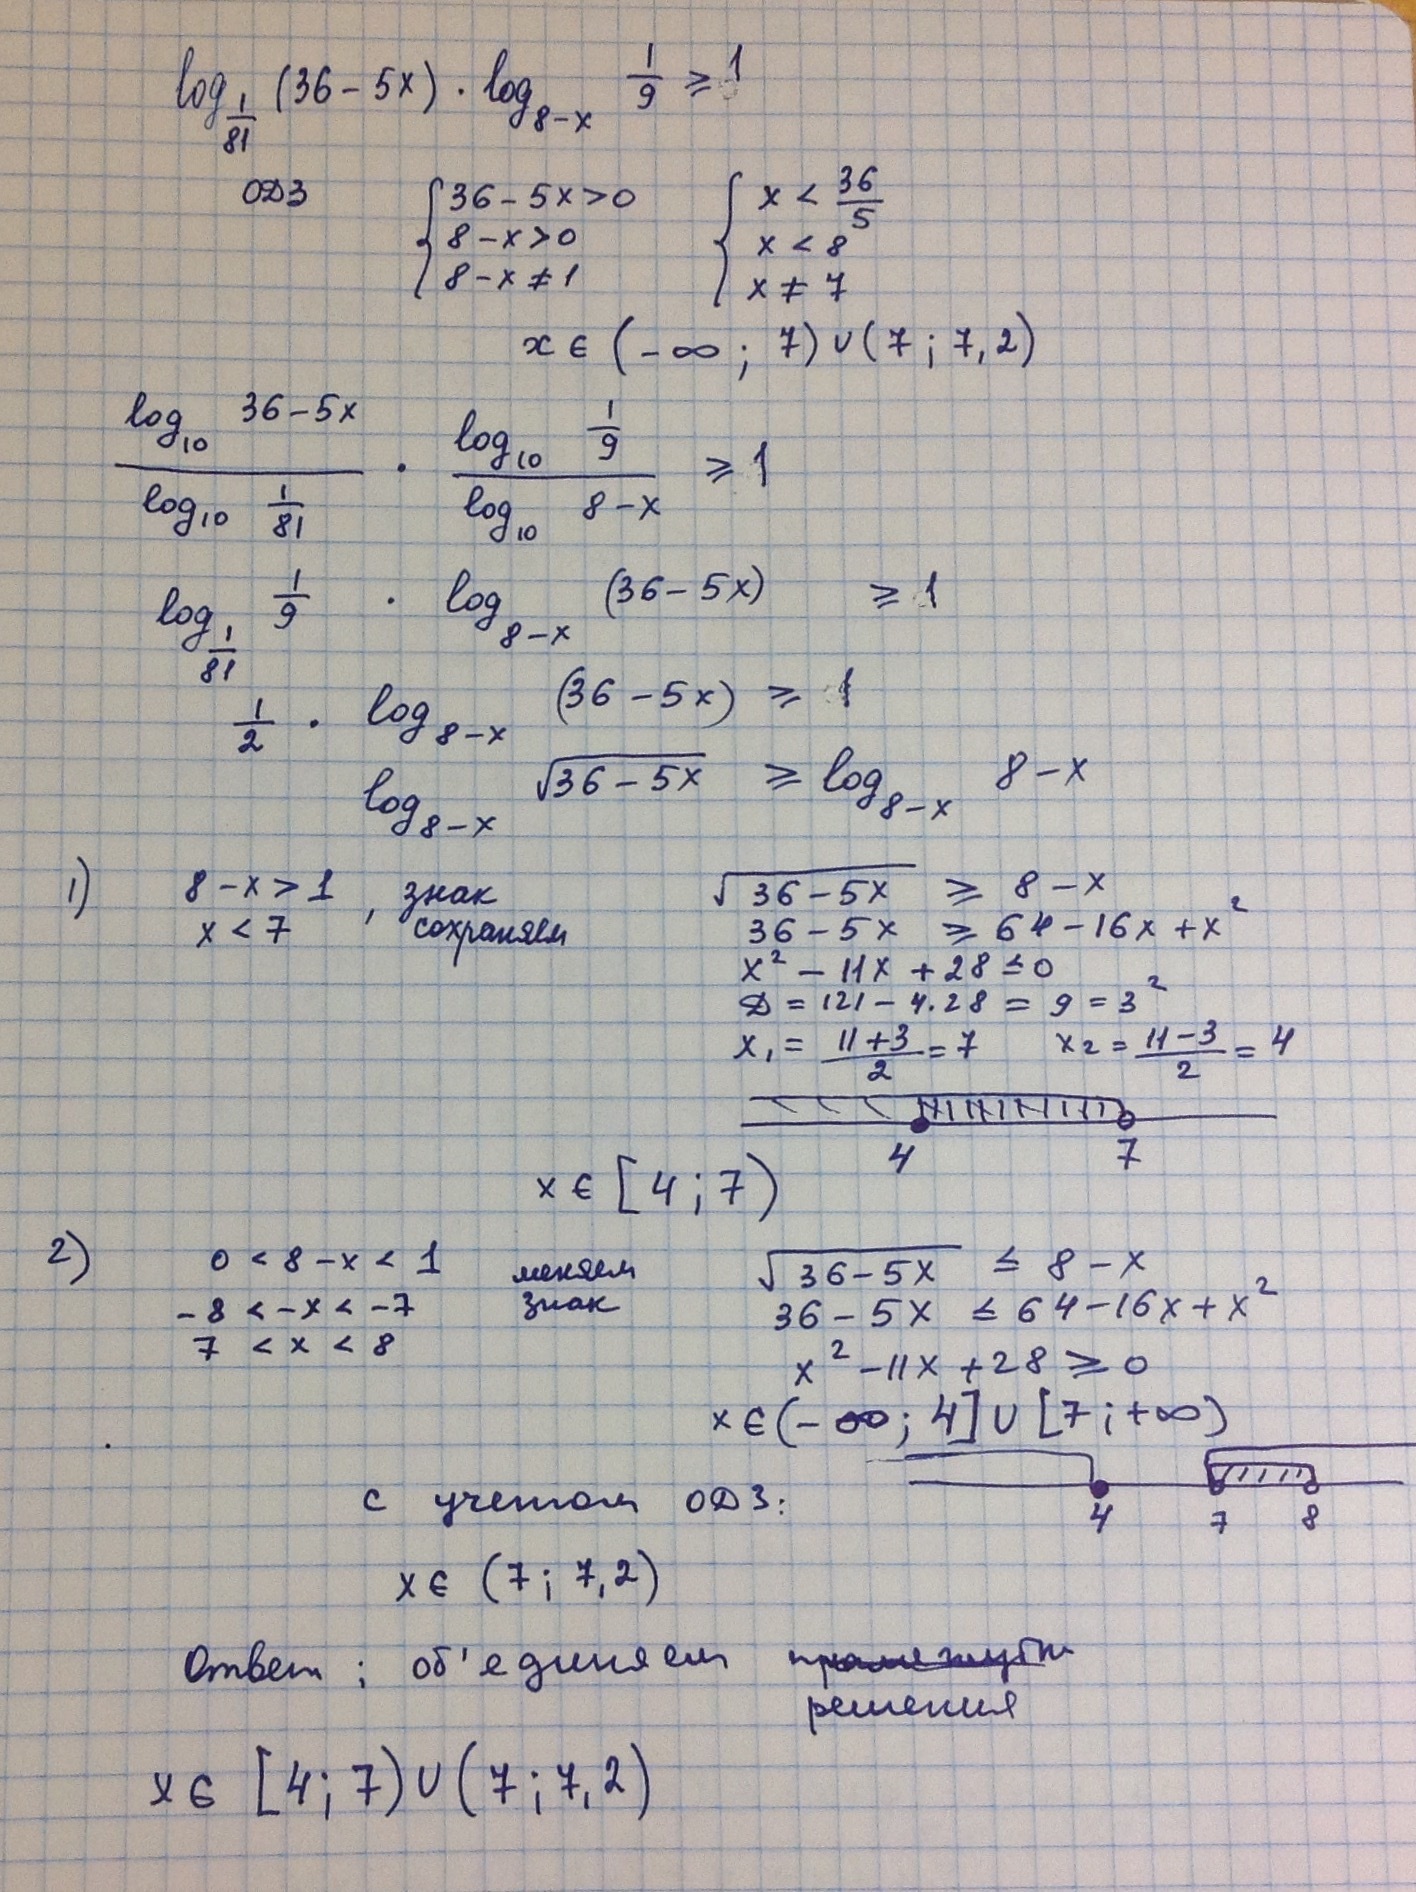 log_{1/81} (36-5x) · log_{8-x} 1/9 ≥ 1
ОДЗ { 36-5x>0 { x < 36/5
8-x>0 x < 8
8-x≠1 x ≠ 7
x ∈ (-∞; 7) ∪ (7; 7,2)
(log_{10} 36-5x)/(log_{10} 1/81) · (log_{10} 1/9)/(log_{10} 8-x) ≥ 1
log_{1/81} 1/9 · log_{8-x} (36-5x) ≥ 1
1/2 · log_{8-x} (36-5x) ≥ 1
log_{8-x} √(36-5x) ≥ log_{8-x} 8-x
1) 8-x>1, знак √(36-5x) ≥ 8-x
x<7 сохраняем 36-5x ≥ 64-16x+x²
x²-11x+28≤0
Д = 121-4.28 = 9 = 3²
x₁ = (11+3)/2 = 7 x₂ = (11-3)/2 = 4
4 7
x ∈ [4; 7)
2) 0 < 8-x < 1 меняем √(36-5x) ≤ 8-x
-8 < -x < -7 знак 36-5x ≤ 64-16x+x²
7 < x < 8
x²-11x+28≥0
x∈(-∞; 4]∪[7;+∞)
4 7 8
с учетом ОДЗ:
x∈ (7; 7,2)
Ответ: об'единяем промежутки
решения
x∈ [4; 7)∪(7; 7,2)